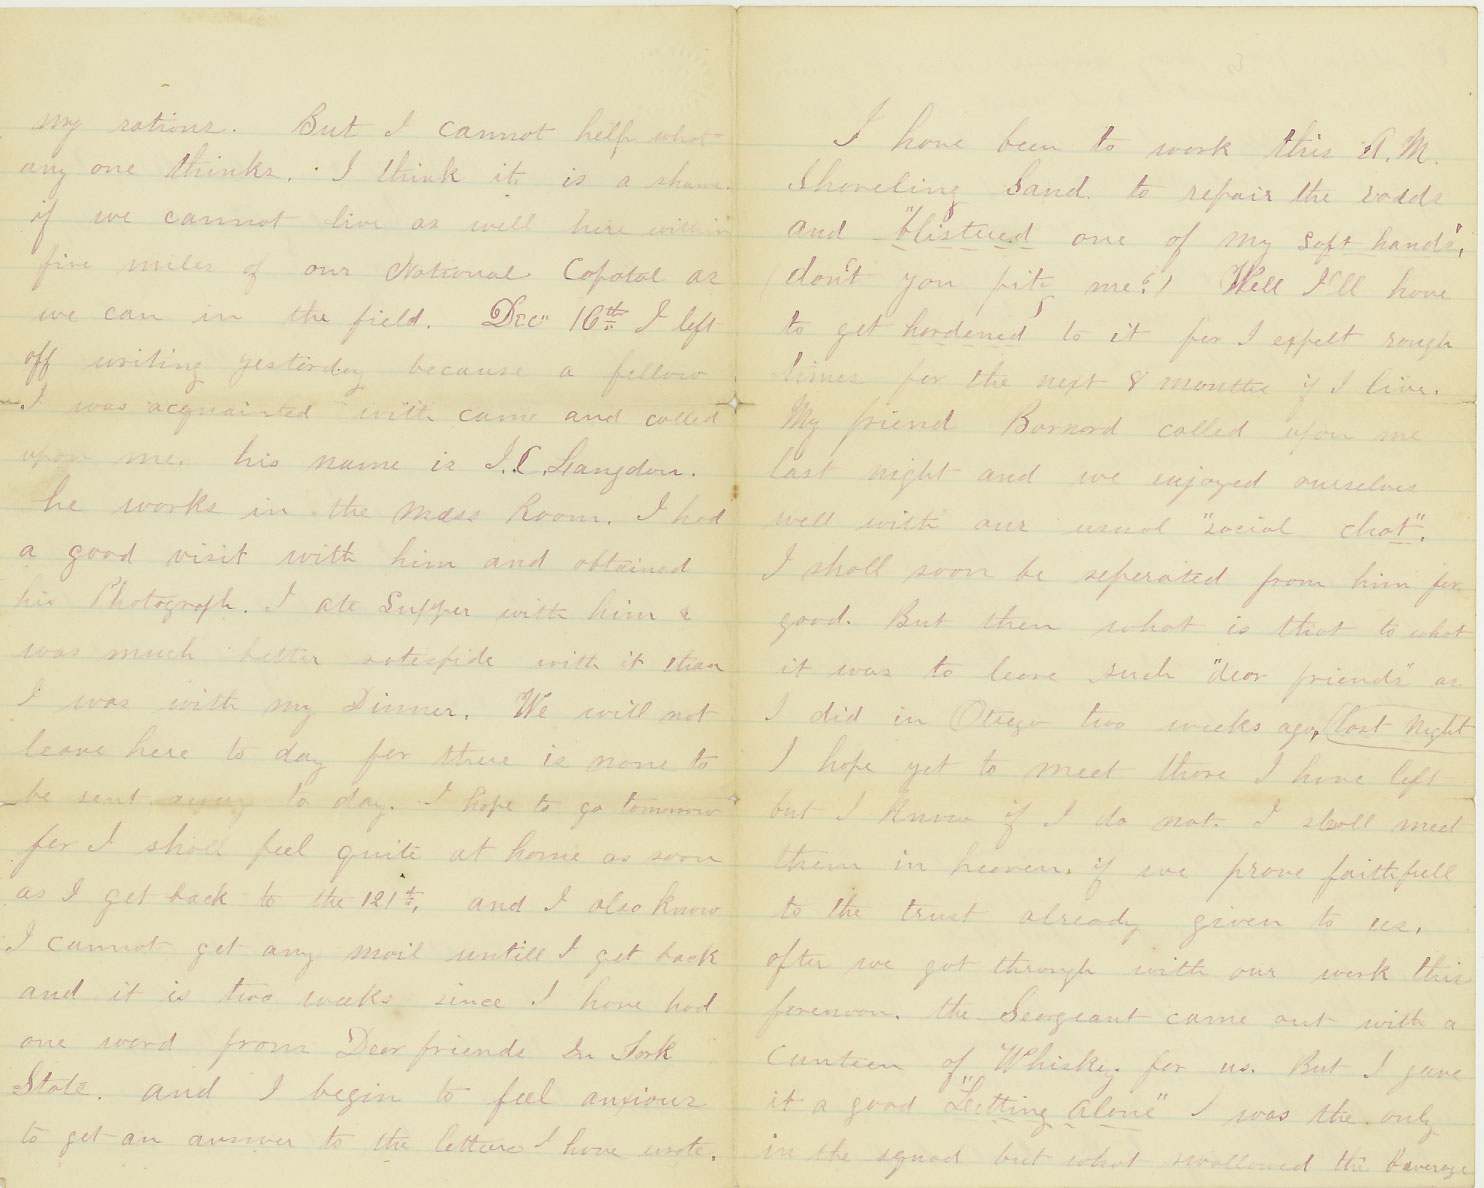 my rations. But I cannot help what
any one thinks. I think it is a shame
if we cannot live as well here within
five miles of our National Capotal as
we can in the field. Dec 16th I left
off writing yesterday because a fellow
I was acquainted with came and called
upon me. his name is I. C. Langdon.
he works in the Mess Room. I had
a good visit with him and obtained
his Photograph. I ate Supper with him &
was much better satisfide with it than
I was with my Dinner. We will not
leave here to day for there is none to
be sent away to day. I hope to go tomorrow
for I shall feel quite at home as soon
as I get back to the 121st, and I also know
I cannot get any mail untill I get back
and it is two weeks since I have had
one word from Dear friends in York
State. and I begin to feel anxious
to get an answer to the letters I have wrote.
I have been to work this A.M.
Shoveling Sand to repair the roads
and "blistered one of my soft hands",
(don't you pity me?) Well I'll have
to get hardened to it for I expect rough
times for the next 8 months if I live.
My friend Barnard called upon me
last night and we enjoyed ourselves
well with our usual "social chat".
I shall soon be seperated from him for
good. But then what is that to what
it was to leave such "dear friends" as
I did in Otego two weeks ago, last Night
I hope yet to meet those I have left
but I know if I do not I shall meet
them in heaven. if we prove faithfull
to the trust already given to us.
after we got through with our work this
forenoon. the Seargeant came out with a
Canteen of Whiskey for us. But I gave
it a good "Letting alone" I was the only
in the squad but what swallowed the baverage